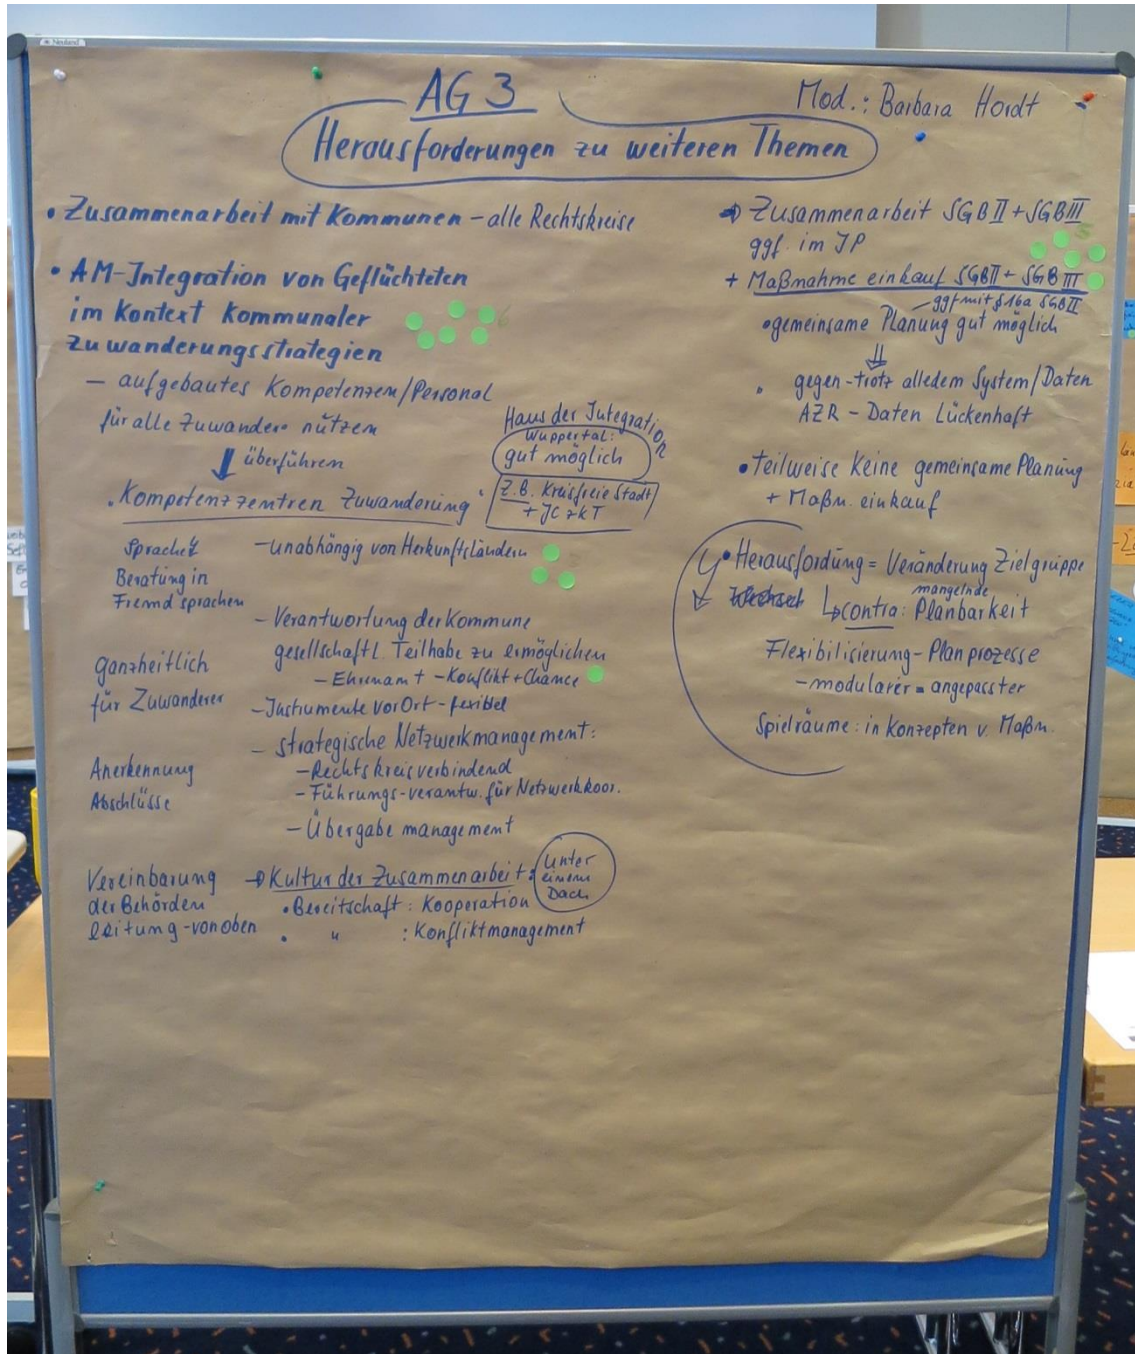 AG 3
Mod.: Barbara Hordt
Herausforderungen zu weiteren Themen
• Zusammenarbeit mit Kommunen – alle Rechtskreise
• AM-Integration von Geflüchteten
im Kontext Kommunaler
Zuwanderungsstrategien
6
– aufgebautes Kompetenzen/Personal
für alle Zuwander. nützen
überführen
Haus der Integration
Wuppertal:
gut möglich
Z.B. Kreisfreie Stadt
+ JC zkT
"Kompetenzzentren Zuwanderung"
Sprache
Beratung in
Fremdsprachen
– unabhängig von Herkunftsländern
– Verantwortung der Kommune
gesellschaftl. Teilhabe zu ermöglichen
– Ehrenamt – Konflikt + Chance
ganzheitlich
für Zuwanderer
– Instrumente vor Ort – fexibel
– strategische Netzwerkmanagement:
– Rechtskreisverbindend
– Führungs-verantw. für Netzwerkkoor.
– Übergabe management
Anerkennung
Abschlüsse
Vereinbarung
der Behörden
leitung – von oben
→ Kultur der Zusammenarbeit:
Unter
einem
Dach
• Bereitschaft: Kooperation
• " : Konfliktmanagement
→ Zusammenarbeit SGB II + SGB III
ggf. im IP
5
+ Maßnahme einkauf SGB II + SGB III
– ggf mit § 16a SGB II
• gemeinsame Planung gut möglich
⇓
• gegen - trotz alledem System/Daten
AZR – Daten Lückenhaft
• Teilweise Keine gemeinsame Planung
+ Maßn. einkauf
• Herausfordung = Veränderung Zielgruppe
Wechsel
↳ contra: mangelnde Planbarkeit
Flexibilisierung – Planprozesse
– modularer = angepasster
Spielräume: in Konzepten v. Maßn.